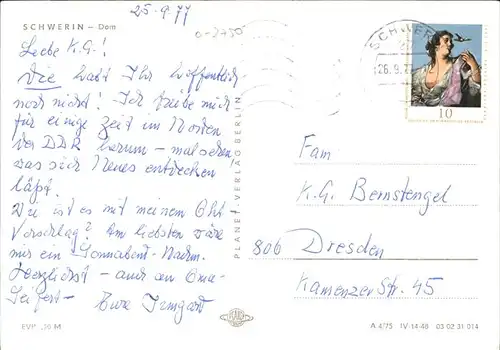 25.9.77
SCHWERIN – Dom
Liebe K.G.!
Die habt Ihr hoffentlich
noch nicht! Ich treibe mich
für einige Zeit im Norden
der DDR herum – mal sehen,
was sich Neues entdecken
läßt.
Wie ist es mit meinem Okt.
Vorschlag? Am liebsten wäre
mir ein Sonnabend-Nachm.
Herzlichst – auch an Oma
Seifert – Eure Irmgard
PLANET-VERLAG BERLIN
SCHWER
26.9.77
10
Fam
K.G. Bernstengel
806 Dresden
Kamenzer Str. 45
EVP -,20 M
PLANET
A 4/75 IV-14-48 03 02 31 014